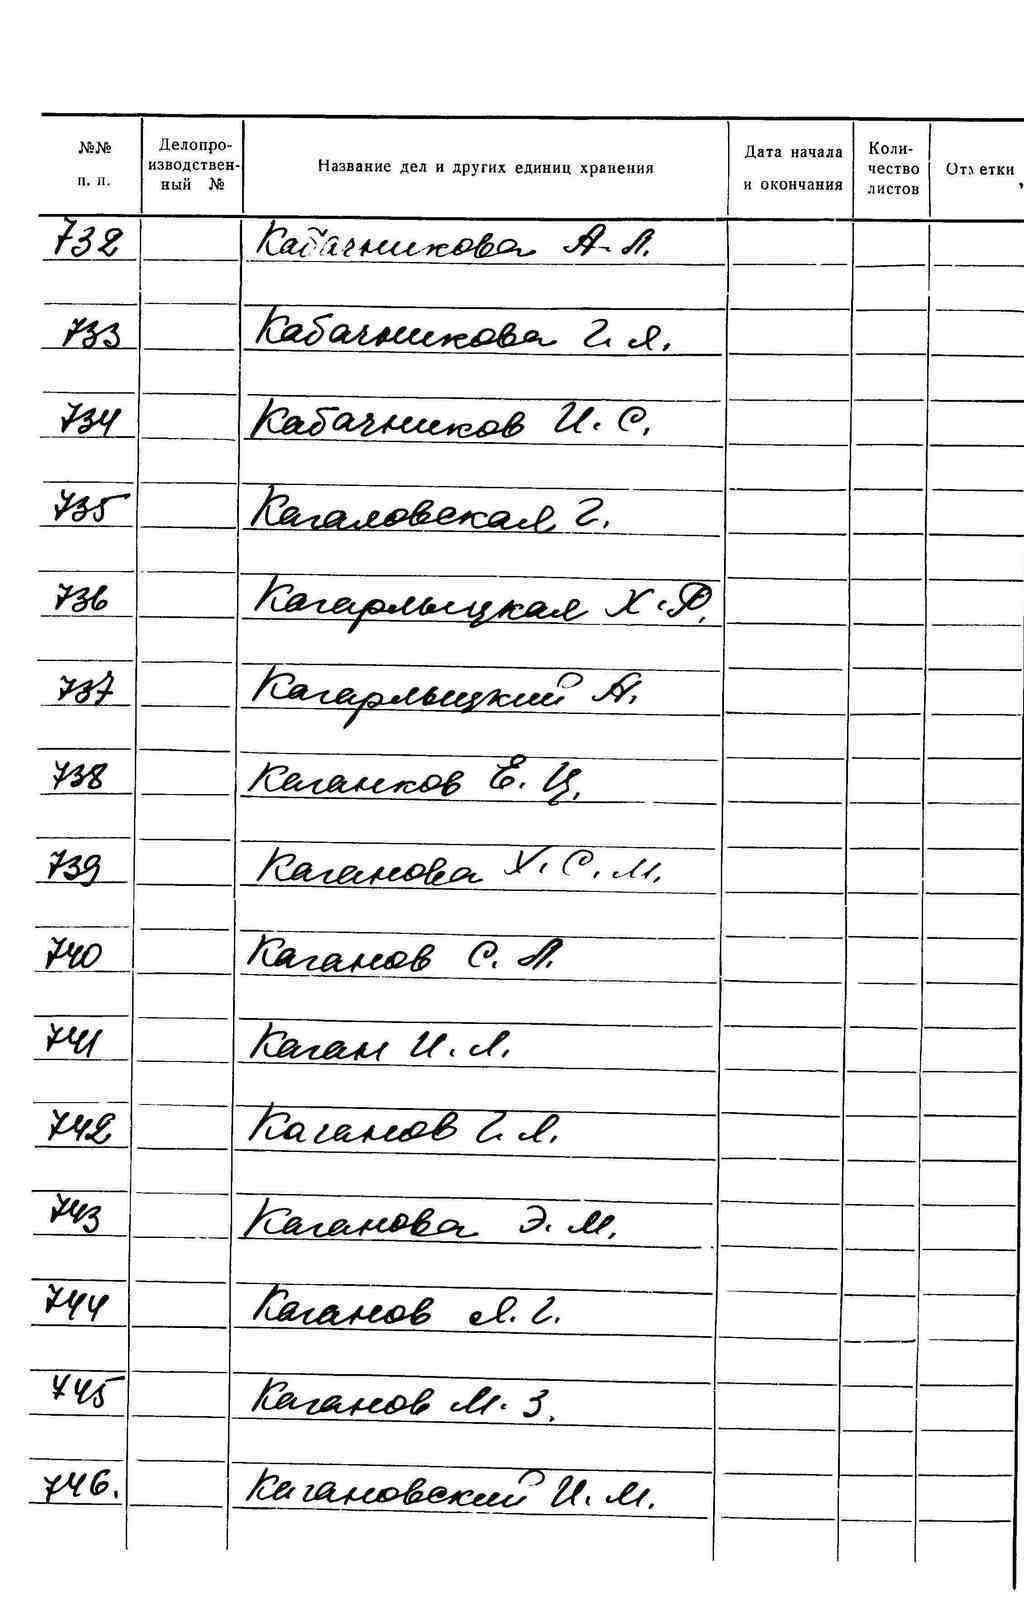 №№ п. п.
Делопро-
изводствен-
ный №
Название дел и других единиц хранения
Дата начала
и окончания
Коли-
чество
листов
От етки
732 Кабачникова А. Л.
733 Кабачникова Г. Я.
734 Кабачников И. С.
735 Кагаловская Г.
736 Кагарлыцкая Х. Ф.
737 Кагарлыцкий А.
738 Каганков Е. Ц.
739 Каганова Х. С. М.
740 Каганов С. Л.
741 Каган И. Л.
742 Каганов Г. Л.
743 Каганова Э. М.
744 Каганов Л. Г.
745 Каганов М. З.
746. Кагановский И. М.